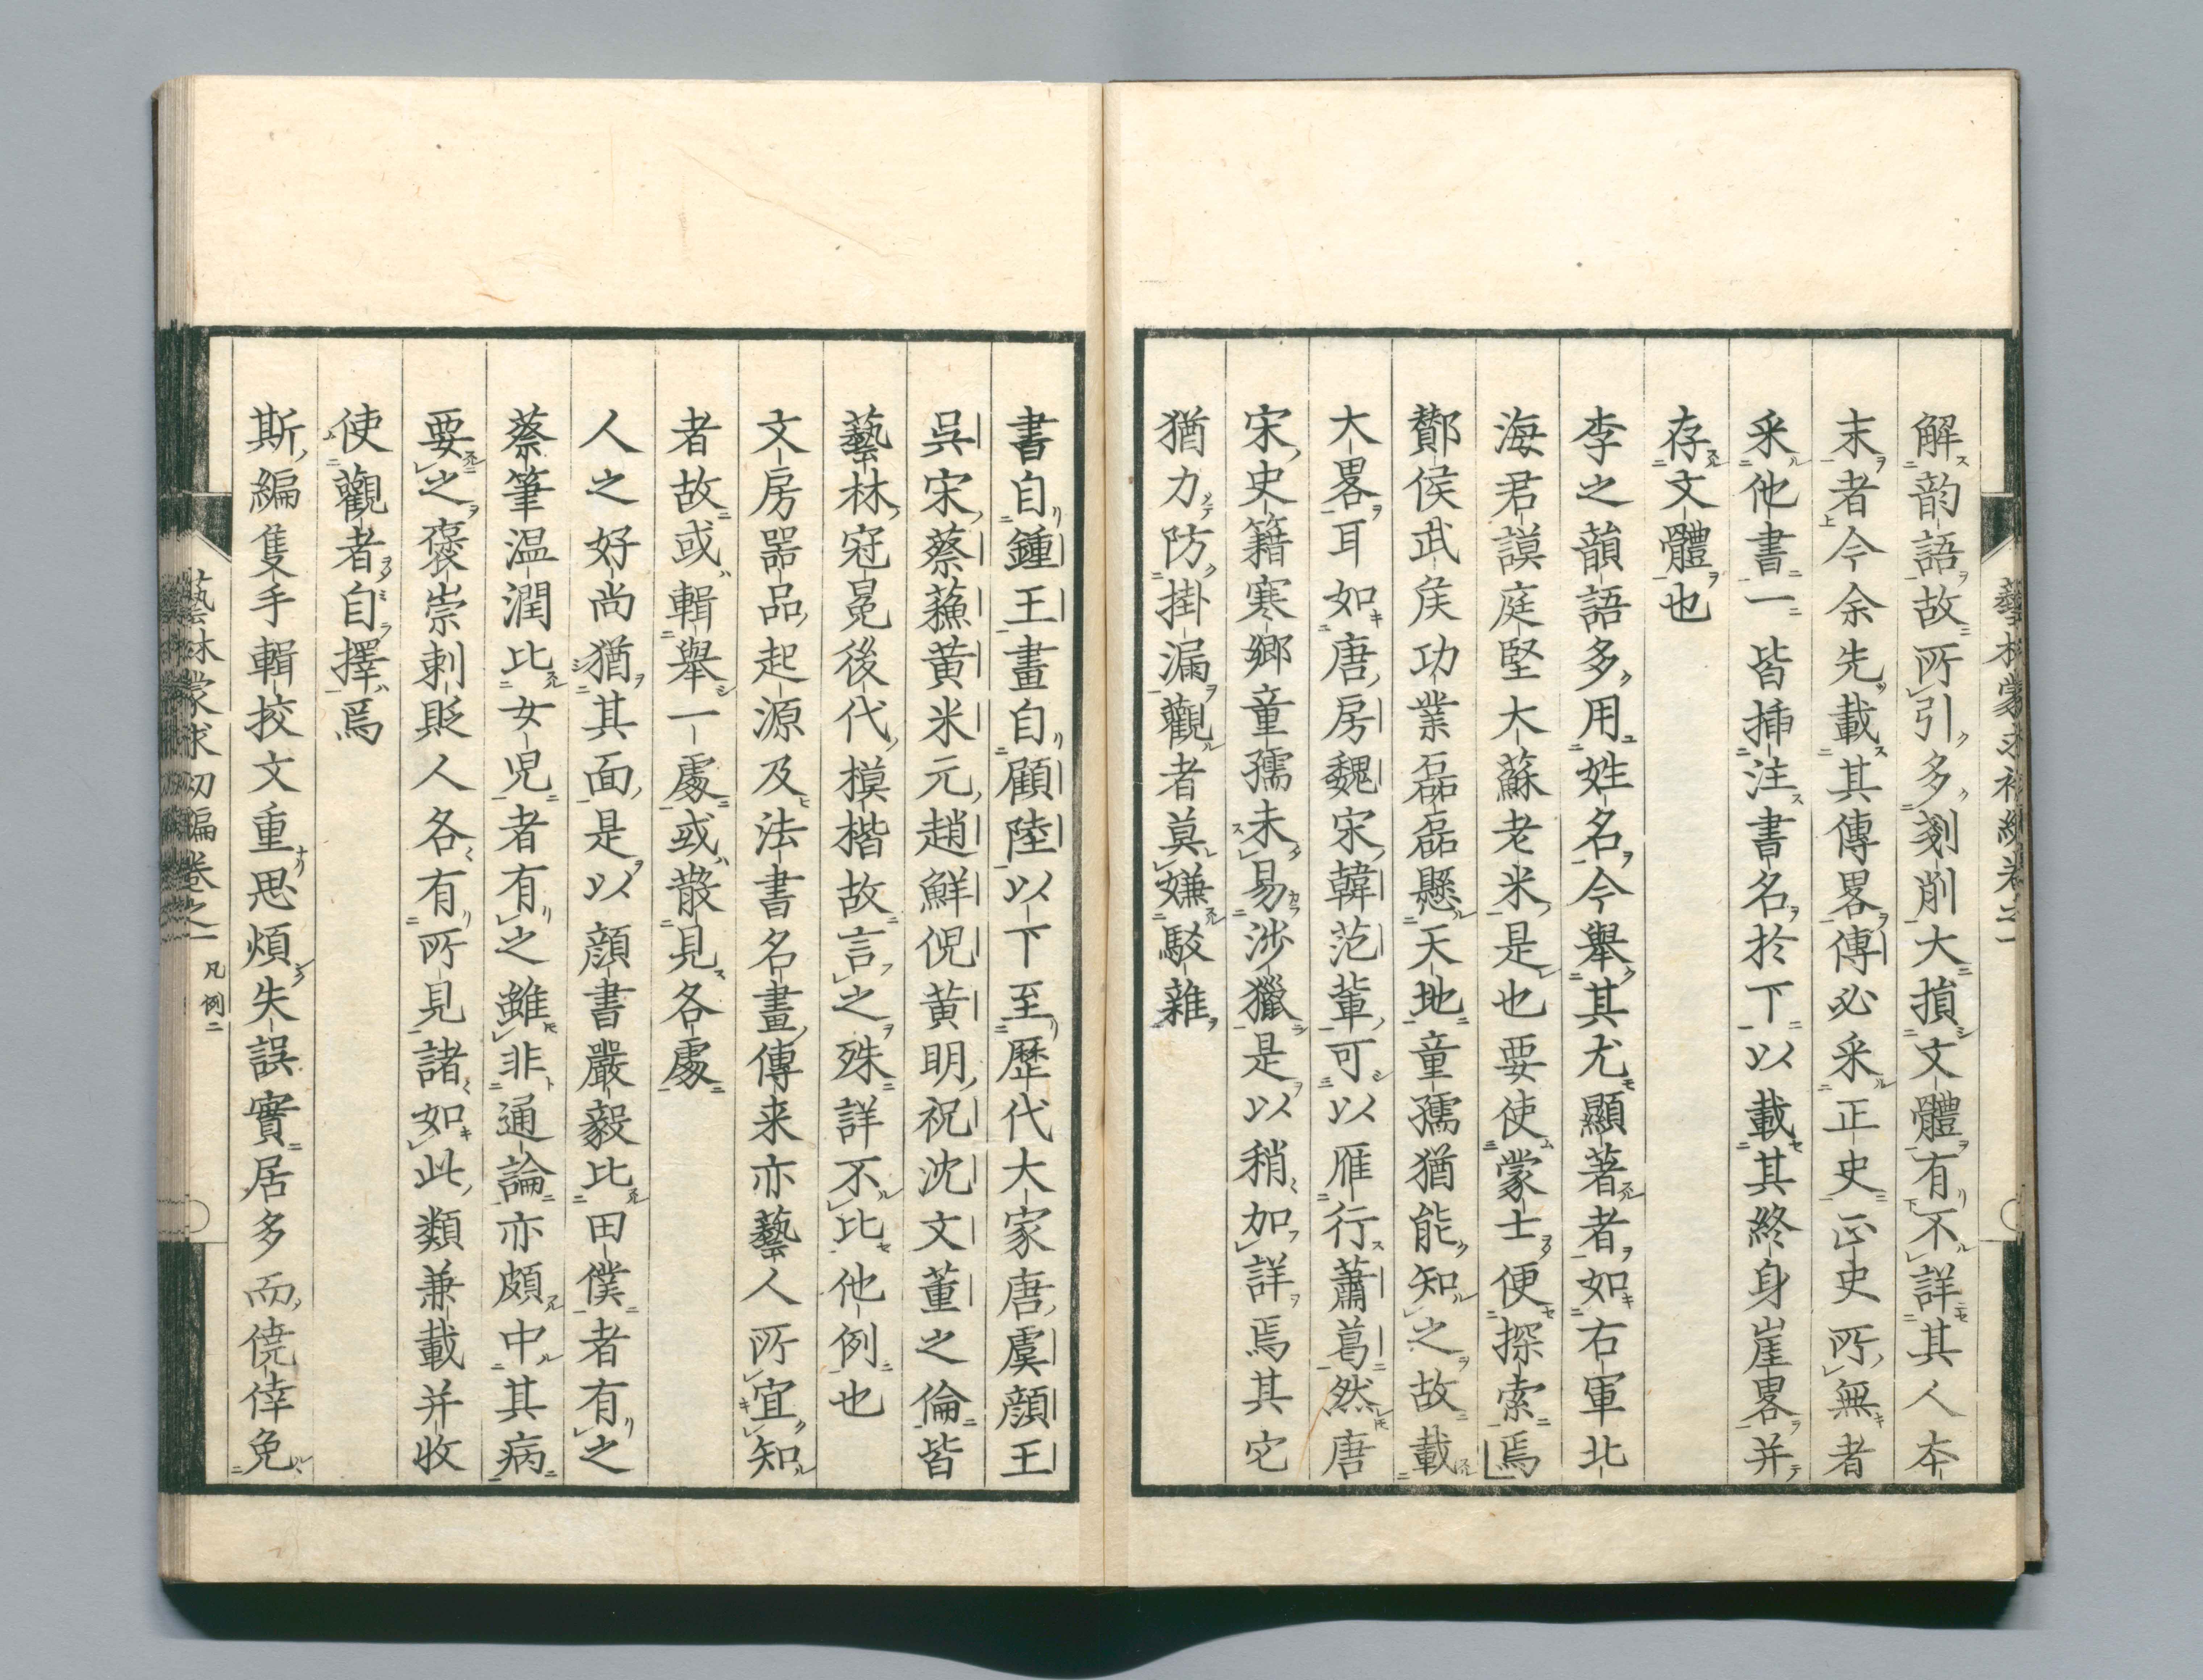 解韵語故所引多剗削大損文體有不詳其人本
末者今余先載其傳畧傳必采正史正史所無者
采他書一一皆挿注書名於下以載其終身崖畧并
存文體也
李之韻語多用姓名今舉其尤顯著者如右軍北
海君謨庭堅大蘇老米是也要使蒙士便探索焉
酇侯武矦功業磊磊懸天地童孺猶能知之故載
大畧耳如唐房魏宋韓范輩可以雁行蕭葛然唐
宋史籍寒鄉童孺未易涉獵是以稍加詳焉其它
猶力防掛漏觀者莫嫌駁雜
書自鍾王畫自顧陸以下至歷代大家唐虞顔王
吳宋蔡蘓黄米元趙鮮倪黄明祝沈文董之倫皆
藝林冠冕後代模楷故言之殊詳不比他例也
文房噐品起源及法書名畫傳来亦藝人所宜知
者故或輯舉一處或散見各處
人之好尚猶其面是以顔書嚴毅比田僕者有之
蔡筆温潤比女児者有之雖非通論亦頗中其病
要之褒崇刺貶人各有所見諸如此類兼載并收
使觀者自擇焉
斯編隻手輯挍文重思煩失誤實居多而僥倖免
藝林蒙求初編卷之一 凡例二